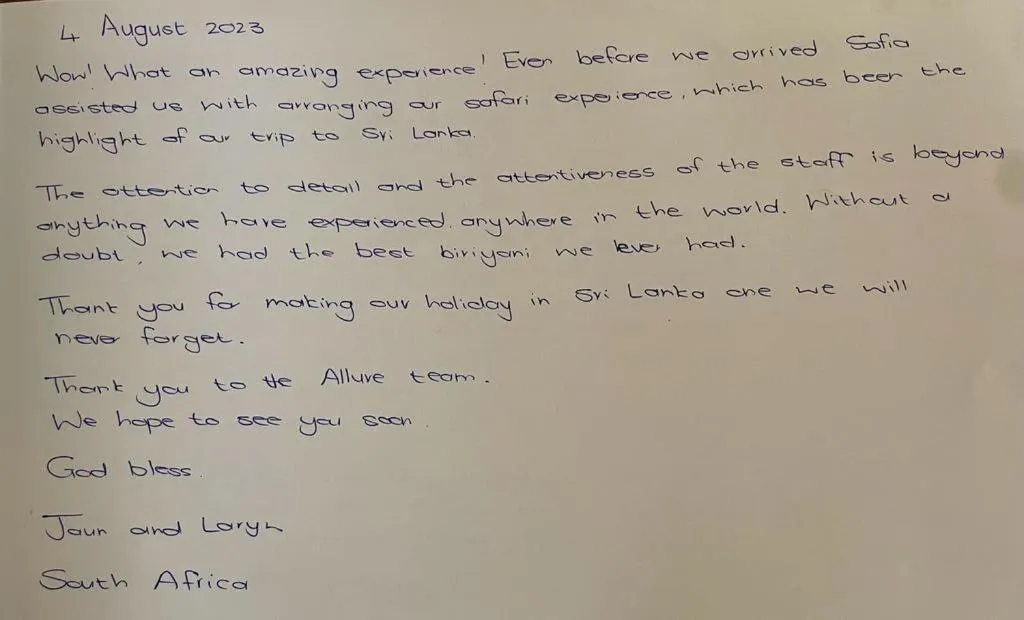 4 August 2023
Wow! What an amazing experience! Even before we arrived Sofia
assisted us with arranging our safari experience, which has been the
highlight of our trip to Sri Lanka.
The attention to detail and the attentiveness of the staff is beyond
anything we have experienced anywhere in the world. Without a
doubt, we had the best biriyani we ever had.
Thank you for making our holiday in Sri Lanka one we will
never forget.
Thank you to the Allure team.
We hope to see you soon.
God bless.
Jaun and Laryn
South Africa